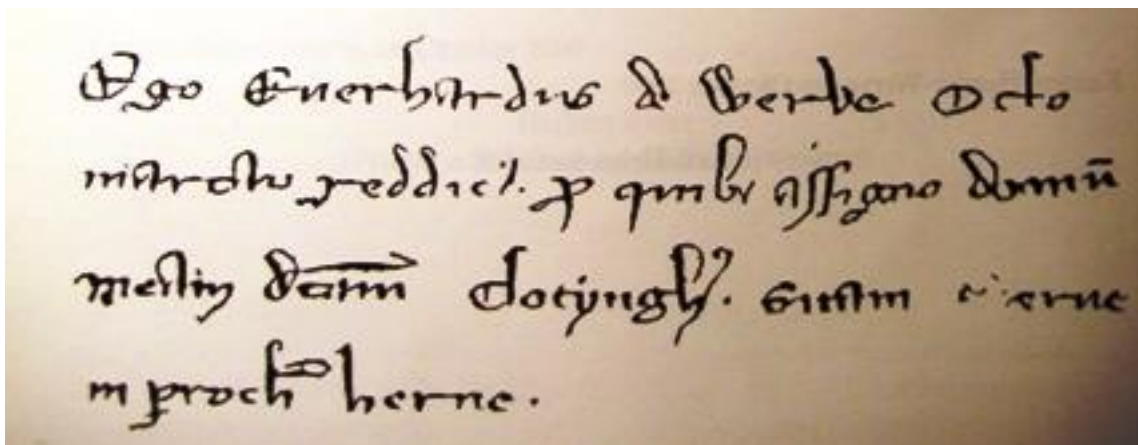 Ego Euerhardus de Werbe Octo
marchū reddit. p quibȝ assigno domū
meam dcām Cloeyngh. sitam i erne
in proch herne.